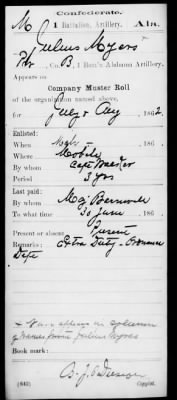 Confederate.
M 1 Battalion, Artillery. Ala.
Julius Myers
Pvt, Co. B, 1 Batt'n Alabama Artillery.
Appears on
Company Muster Roll
of the organization named above,
for July & Aug, 1862.
Enlisted:
When 186
Where Mobile
By whom Capt
Period 3 yrs
Last paid:
By whom Maj
To what time 30 June 186
Present or absent Present
Remarks: Extra Duty - Ordnance
Dept
Name appears in column
of Names present Julius Myers
Book mark:
(642) Copyist.